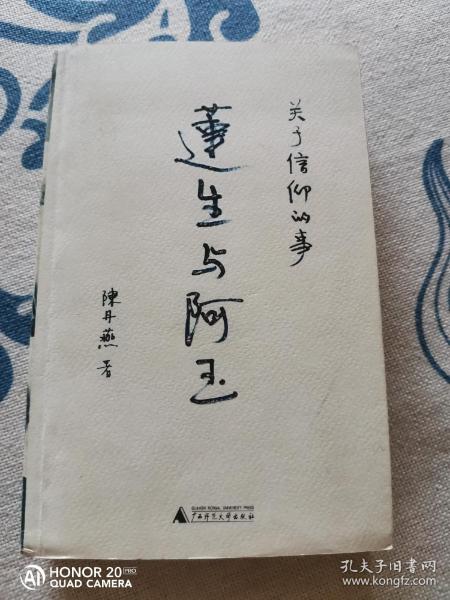 关于信仰的事
蓮生与阿玉
陳丹燕 著
GUANGXI NORMAL UNIVERSITY PRESS
广西师范大学出版社
AI HONOR 20 PRO
QUAD CAMERA
孔夫子旧书网
www.kongfz.com